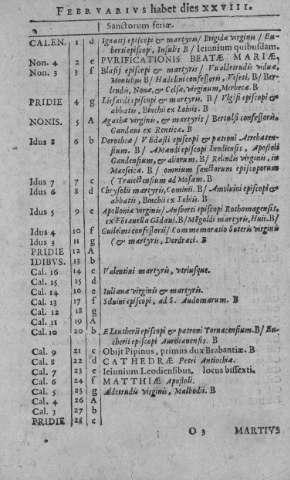 FEBRVARIVS habet dies XXVIII.
Sanctorum feriæ.
CALEN. 1 d Ignatij episcopi & martyris / Brigidæ virginis / Eubertij episcopi, Insulæ B / Ieiunium quibusdam.
Non. 4 2 e PVRIFICATIONIS BEATÆ MARIÆ,
Non. 3 3 f Blasij episcopi & martyris / viduæ,
B / Hadelini confessoris, Viseti, B / Berlendis, Nonæ, & Celsæ, virginum, B
PRIDIE 4 g Liefardi episcopi & martyris / B / episcopi &
abbatis, B
NONIS. 5 A Agathæ virginis, & martyris / Bertulfi confessoris,
Gandaui ex Rentica. B
Idus 8 6 b Dorotheæ / Vedasti episcopi & patroni Atrebatensium. B / Amandi episcopi
Gandensium, & aliorum. B / Relindis virginis, in
Maeseica. B / omnium sanctorum episcoporum
Traiectensium ad Mosam. B
Idus 7 7 c
Idus 6 8 d martyris, Cominij. B / episcopi &
abbatis, B
Idus 5 9 e Apolloniæ virginis / Ansberti episcopi Rothomagensis,
ex Gādaui. B / martyris, Huij. B /
Idus 4 10 f Guilelmi confessoris / Commemoratio Soteris virginis
Idus 3 11 g & martyris, Dordraci. B
PRIDIE 12 A
IDIBVS. 13 b
Cal. 16 14 c Valentini martyris, vtriusque.
Cal. 15 15 d
Cal. 14 16 e Iulianæ virginis & martyris. B
Cal. 13 17 f Siluini episcopi, ad S. Audomarum. B
Cal. 12 18 g
Cal. 11 19 A
Cal. 10 20 b Eleutherij episcopi & patroni Tornacensium. B / Eucherij episcopi Aurelianensis. B
Cal. 9 21 c Obijt Pipinus, primus dux Brabantiæ. B
Cal. 8 22 d CATHEDRÆ Petri Antiochiæ
Cal. 7 23 e Ieiunium Leodiensibus, locus bissexti.
Cal. 6 24 f MATTHIÆ Apostoli.
Cal. 5 25 g virginis, Malbodij. B
Cal. 4 26 A
Cal. 3 27 b
PRIDIE 28 c
O 3 MARTIVS